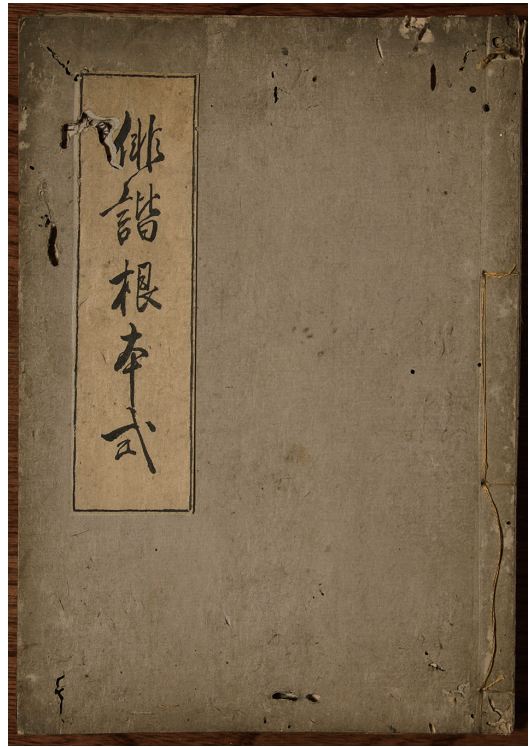 俳諧根本式